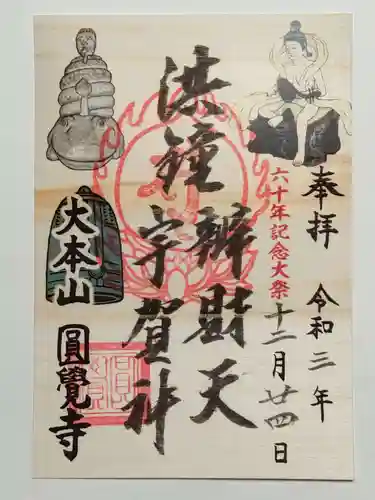 奉拝
令和三年
六十年記念大祭
十二月廿四日
洪鐘
辨財天
宇賀神
大本山
圓覺寺